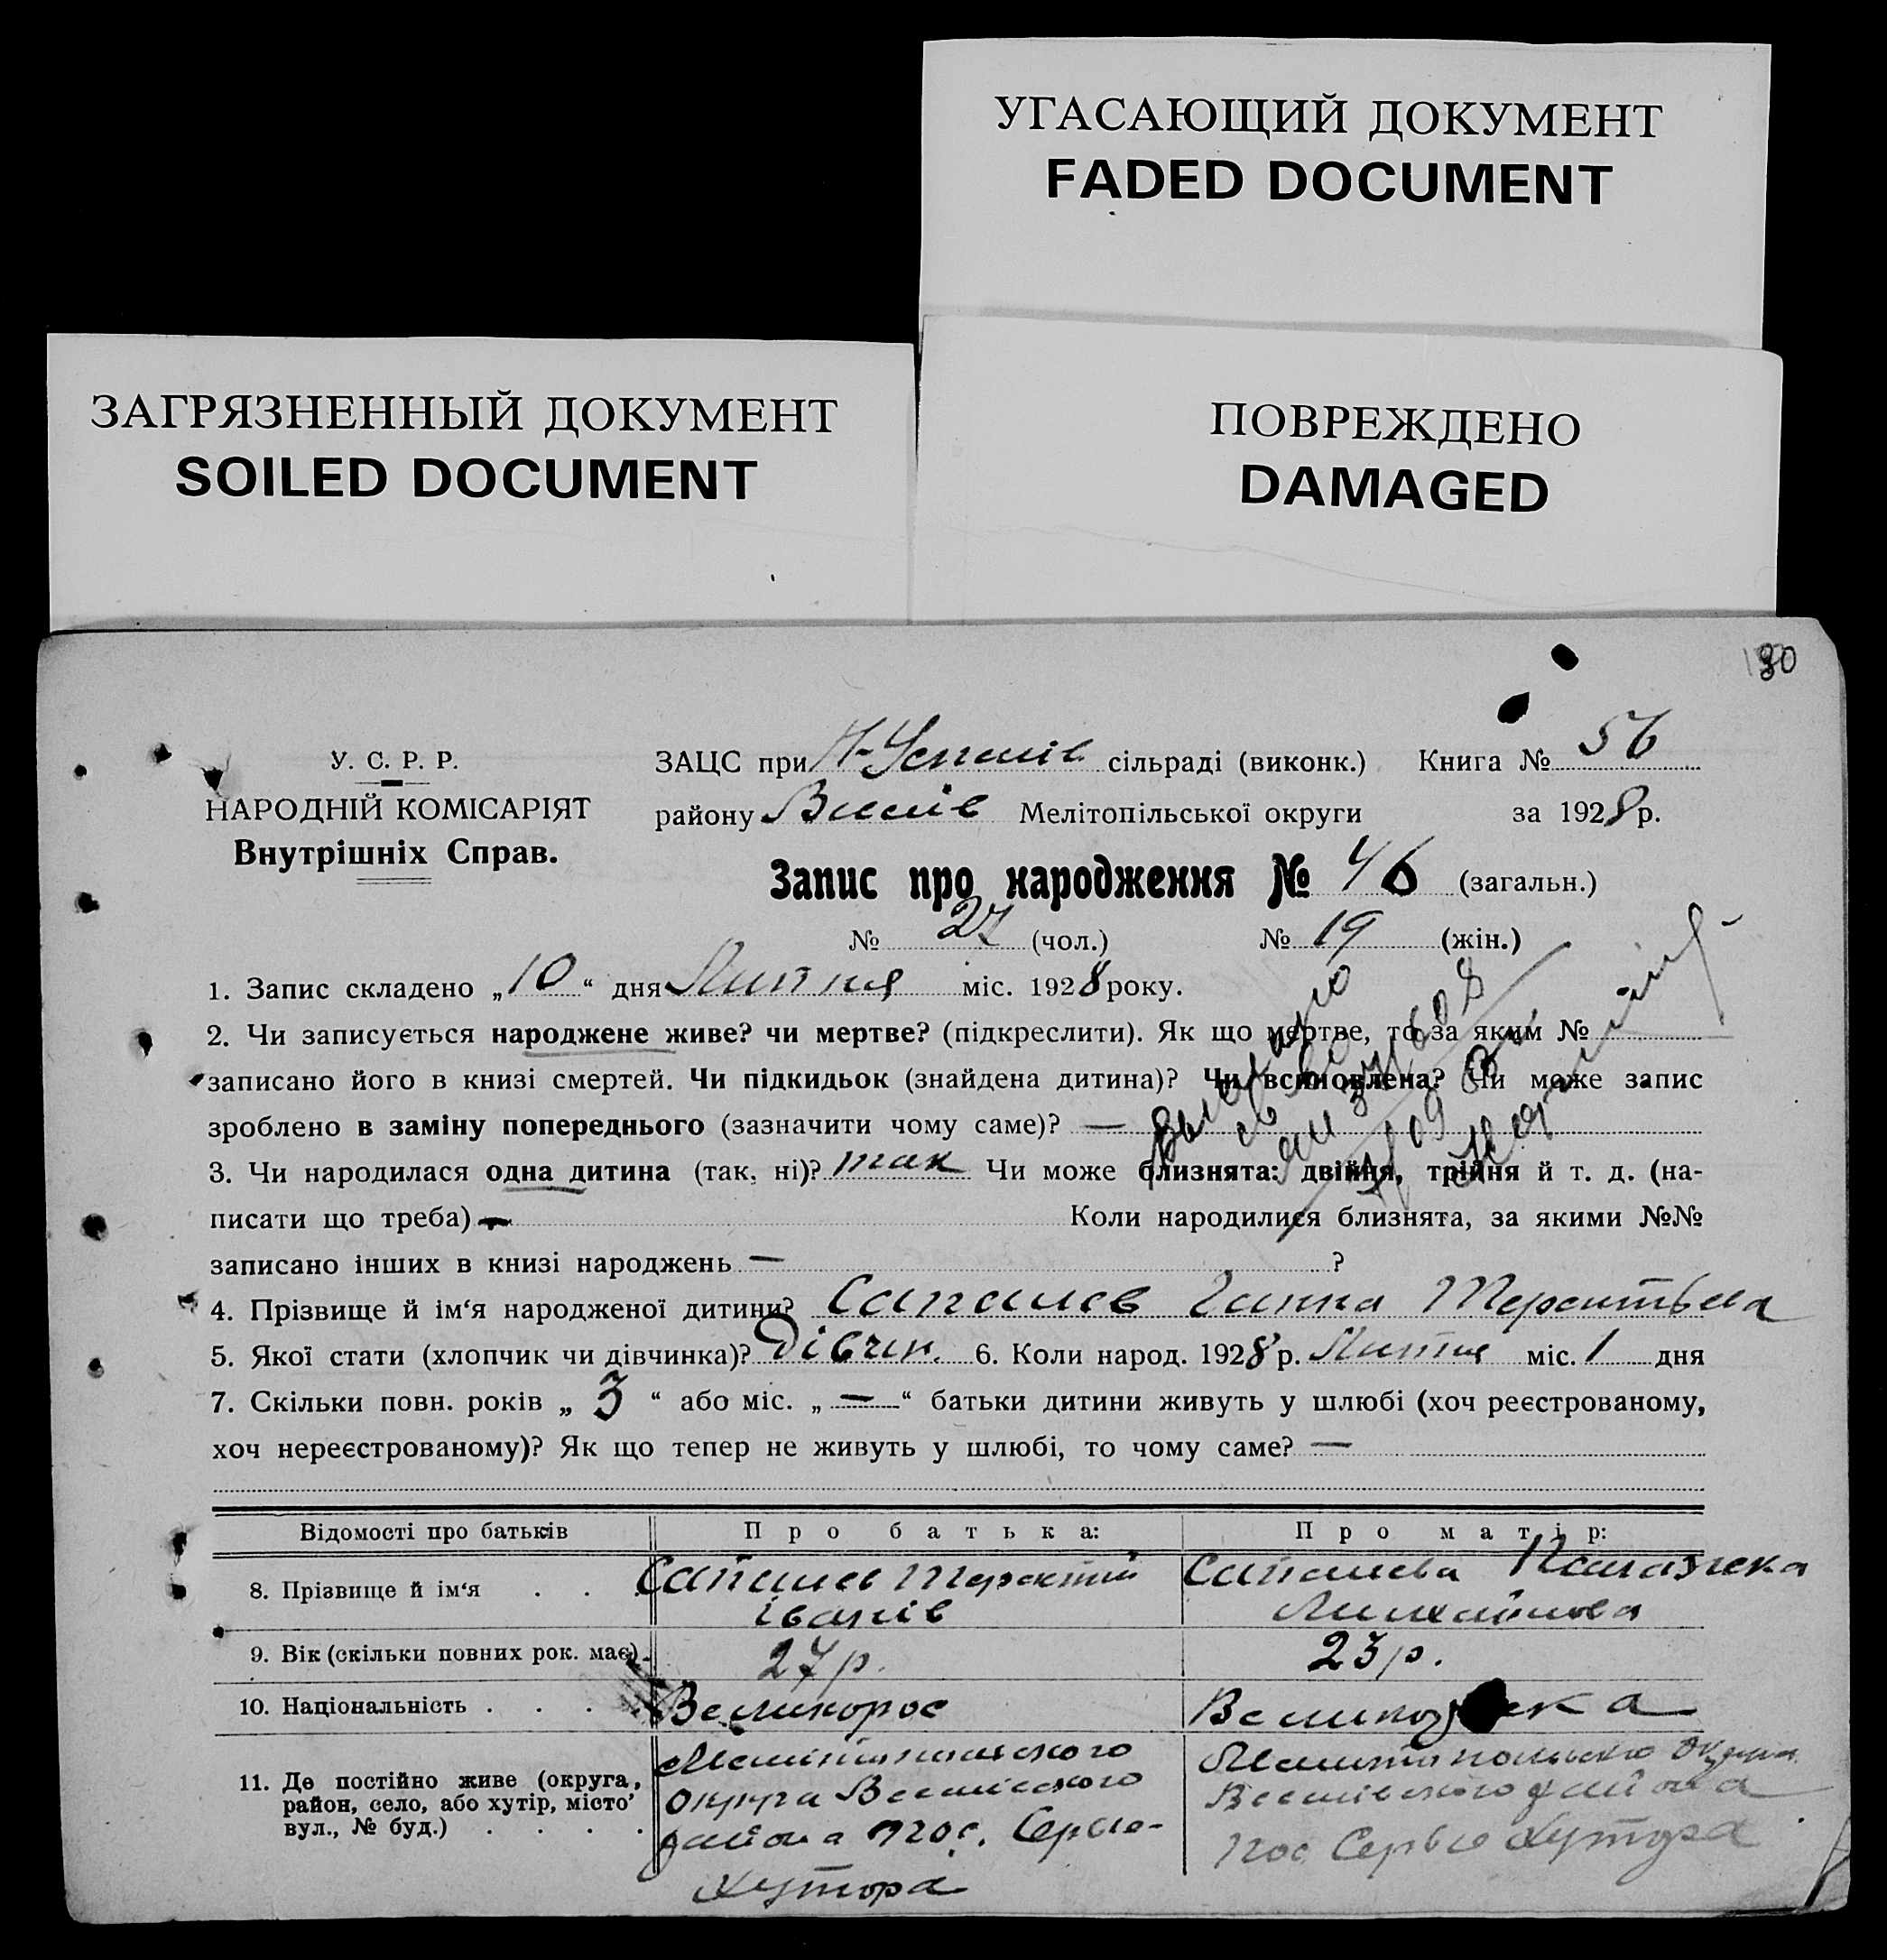 УГАСАЮЩИЙ ДОКУМЕНТ
FADED DOCUMENT
ЗАГРЯЗНЕННЫЙ ДОКУМЕНТ
SOILED DOCUMENT
ПОВРЕЖДЕНО
DAMAGED
30
У. С. Р. Р.
НАРОДНІЙ КОМІСАРІЯТ
Внутрішніх Справ.
ЗАЦС при Н-Успенів сільраді (виконк.) Книга № 56
району Весел Мелітопільської округи за 1928 р.
Запис про народження № 46 (загальн.)
№ 27 (чол.) № 19 (жін.)
1. Запис складено „10“ дня Липня міс. 1928 року.
2. Чи записується народжене живе? чи мертве? (підкреслити). Як що мертве, то за яким №
записано його в книзі смертей. Чи підкидьок (знайдена дитина)? Чи всиновлена? Чи може запис
зроблено в заміну попереднього (зазначити чому саме)? —
3. Чи народилася одна дитина (так, ні)? так Чи може близнята: двійня, трійня й т. д. (на-
писати що треба) — Коли народилися близнята, за якими №№
записано інших в книзі народжень — ?
4. Прізвище й ім‘я народженої дитини? Сапашев Ганна Терентьева
5. Якої стати (хлопчик чи дівчинка)? Дівчин. 6. Коли народ. 1928 р. Липня міс. 1 дня
7. Скільки повн. років „ 3 “ або міс. „ — “ батьки дитини живуть у шлюбі (хоч реєстрованому,
хоч нереєстрованому)? Як що тепер не живуть у шлюбі, то чому саме? —
Відомості про батьків Про батька: Про матір:
8. Прізвище й ім‘я . . . Сапашев Терентій Сапашева Палажека
Іванів Михайлова
9. Вік (скільки повних рок. має). 27 р. 23 р.
10. Національність . . . . Великорос
11. Де постійно живе (округа, район, село, або хутір, місто, вул., № буд.) . . . .
Мелітопільского
Округа Веселівского
района пос. Серые-
Хутора
Мелитопольско Округа
Веселівского района
пос Серые Хутора